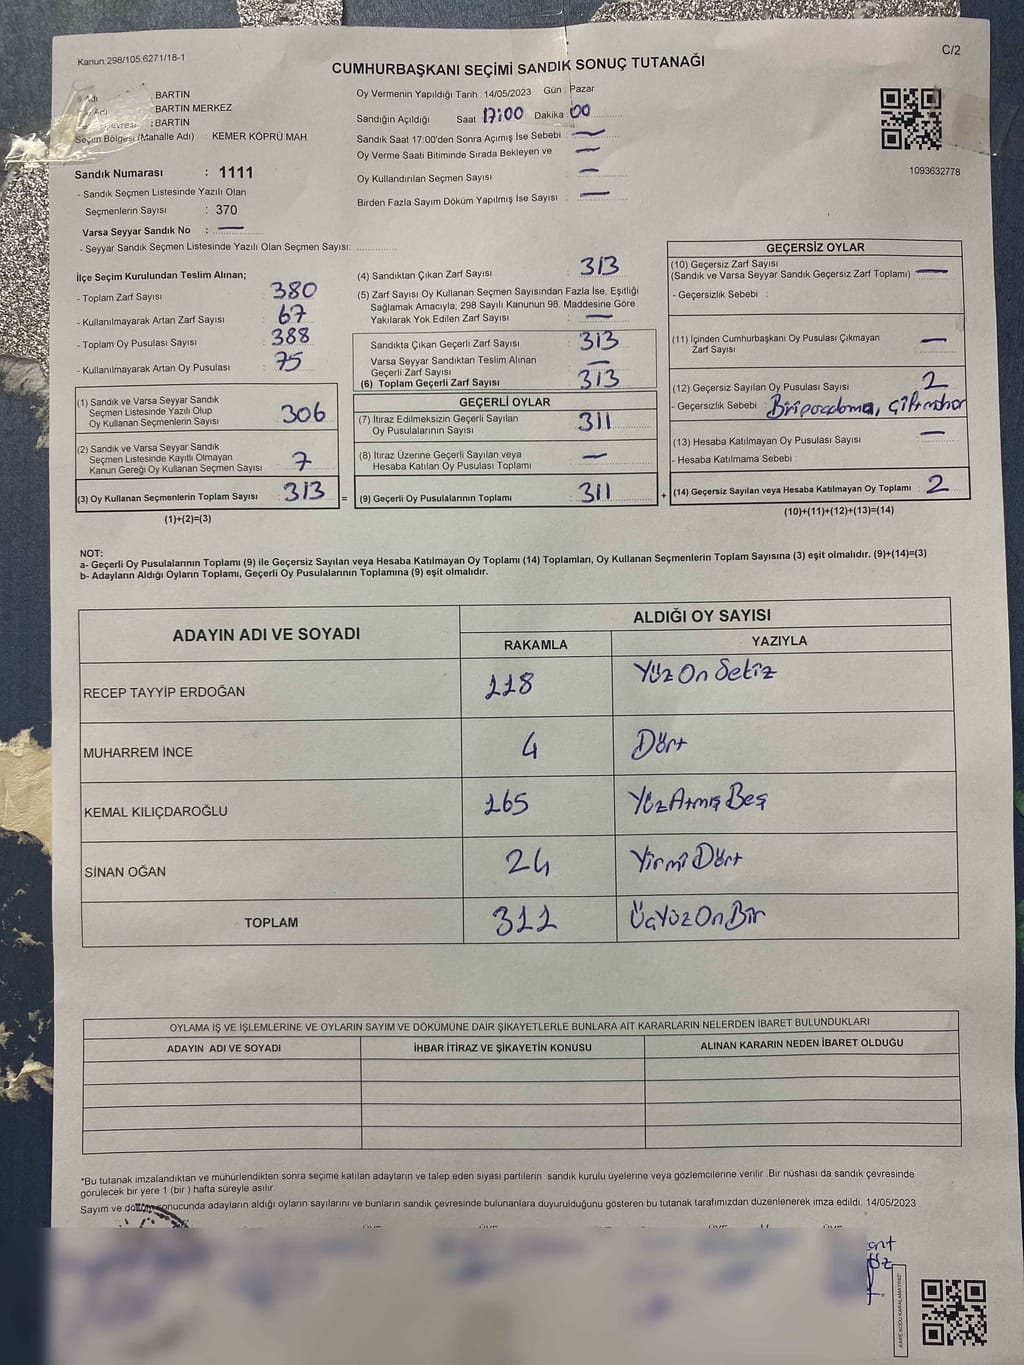 Kanun 298/105 6271/18-1
C/2
CUMHURBAŞKANI SEÇİMİ SANDIK SONUÇ TUTANAĞI
Adı : BARTIN
Adı : BARTIN MERKEZ
Çevresi : BARTIN
Seçim Bölgesi (Mahalle Adı) : KEMER KÖPRÜ MAH.
Sandık Numarası : 1111
- Sandık Seçmen Listesinde Yazılı Olan
Seçmenlerin Sayısı : 370
Varsa Seyyar Sandık No : —
- Seyyar Sandık Seçmen Listesinde Yazılı Olan Seçmen Sayısı:
Oy Vermenin Yapıldığı Tarih : 14/05/2023 Gün : Pazar
Sandığın Açıldığı Saat 17:00 Dakika 00
Sandık Saat 17:00'den Sonra Açımış İse Sebebi —
Oy Verme Saati Bitiminde Sırada Bekleyen ve —
Oy Kullandırılan Seçmen Sayısı —
Birden Fazla Sayım Döküm Yapılmış İse Sayısı —
1093632778
İlçe Seçim Kurulundan Teslim Alınan;
- Toplam Zarf Sayısı : 380
- Kullanılmayarak Artan Zarf Sayısı : 67
- Toplam Oy Pusulası Sayısı : 388
- Kullanılmayarak Artan Oy Pusulası : 75
(1) Sandık ve Varsa Seyyar Sandık
Seçmen Listesinde Yazılı Olup
Oy Kullanan Seçmenlerin Sayısı : 306
(2) Sandık ve Varsa Seyyar Sandık
Seçmen Listesinde Kayıtlı Olmayan
Kanun Gereği Oy Kullanan Seçmen Sayısı : 7
(3) Oy Kullanan Seçmenlerin Toplam Sayısı : 313 =
(1)+(2)=(3)
(4) Sandıktan Çıkan Zarf Sayısı : 313
(5) Zarf Sayısı Oy Kullanan Seçmen Sayısından Fazla İse, Eşitliği
Sağlamak Amacıyla, 298 Sayılı Kanunun 98. Maddesine Göre
Yakılarak Yok Edilen Zarf Sayısı : —
Sandıkta Çıkan Geçerli Zarf Sayısı : 313
Varsa Seyyar Sandıktan Teslim Alınan
Geçerli Zarf Sayısı : —
(6) Toplam Geçerli Zarf Sayısı : 313
GEÇERLİ OYLAR
(7) İtiraz Edilmeksizin Geçerli Sayılan
Oy Pusulalarının Sayısı : 311
(8) İtiraz Üzerine Geçerli Sayılan veya
Hesaba Katılan Oy Pusulası Toplamı : —
(9) Geçerli Oy Pusulalarının Toplamı : 311 +
GEÇERSİZ OYLAR
(10) Geçersiz Zarf Sayısı
(Sandık ve Varsa Seyyar Sandık Geçersiz Zarf Toplamı) : —
- Geçersizlik Sebebi :
(11) İçinden Cumhurbaşkanı Oy Pusulası Çıkmayan
Zarf Sayısı : —
(12) Geçersiz Sayılan Oy Pusulası Sayısı : 2
- Geçersizlik Sebebi :
(13) Hesaba Katılmayan Oy Pusulası Sayısı : —
- Hesaba Katılmama Sebebi :
(14) Geçersiz Sayılan veya Hesaba Katılmayan Oy Toplamı : 2
(10)+(11)+(12)+(13)=(14)
NOT:
a- Geçerli Oy Pusulalarının Toplamı (9) ile Geçersiz Sayılan veya Hesaba Katılmayan Oy Toplamı (14) Toplamları, Oy Kullanan Seçmenlerin Toplam Sayısına (3) eşit olmalıdır. (9)+(14)=(3)
b- Adayların Aldığı Oyların Toplamı, Geçerli Oy Pusulalarının Toplamına (9) eşit olmalıdır.
ADAYIN ADI VE SOYADI
ALDIĞI OY SAYISI
RAKAMLA YAZIYLA
RECEP TAYYİP ERDOĞAN 118 Yüz On Sekiz
MUHARREM İNCE 4 Dört
KEMAL KILIÇDAROĞLU 165 Yüz Atmış Beş
SİNAN OĞAN 24 Yirmi Dört
TOPLAM 311 Üç Yüz On Bir
OYLAMA İŞ VE İŞLEMLERİNE VE OYLARIN SAYIM VE DÖKÜMÜNE DAİR ŞİKAYETLERLE BUNLARA AİT KARARLARIN NELERDEN İBARET BULUNDUKLARI
ADAYIN ADI VE SOYADI İHBAR İTİRAZ VE ŞİKAYETİN KONUSU ALINAN KARARIN NEDEN İBARET OLDUĞU
*Bu tutanak imzalandıktan ve mühürlendikten sonra seçime katılan adayların ve talep eden siyasi partilerin sandık kurulu üyelerine veya gözlemcilerine verilir. Bir nüshası da sandık çevresinde
görülecek bir yere 1 (bir ) hafta süreyle asılır.
Sayım ve döküm sonucunda adayların aldığı oyların sayılarını ve bunların sandık çevresinde bulunanlara duyurulduğunu gösteren bu tutanak tarafımızdan düzenlenerek imza edildi. 14/05/2023
KARE KODU KARALAMAYINIZ!